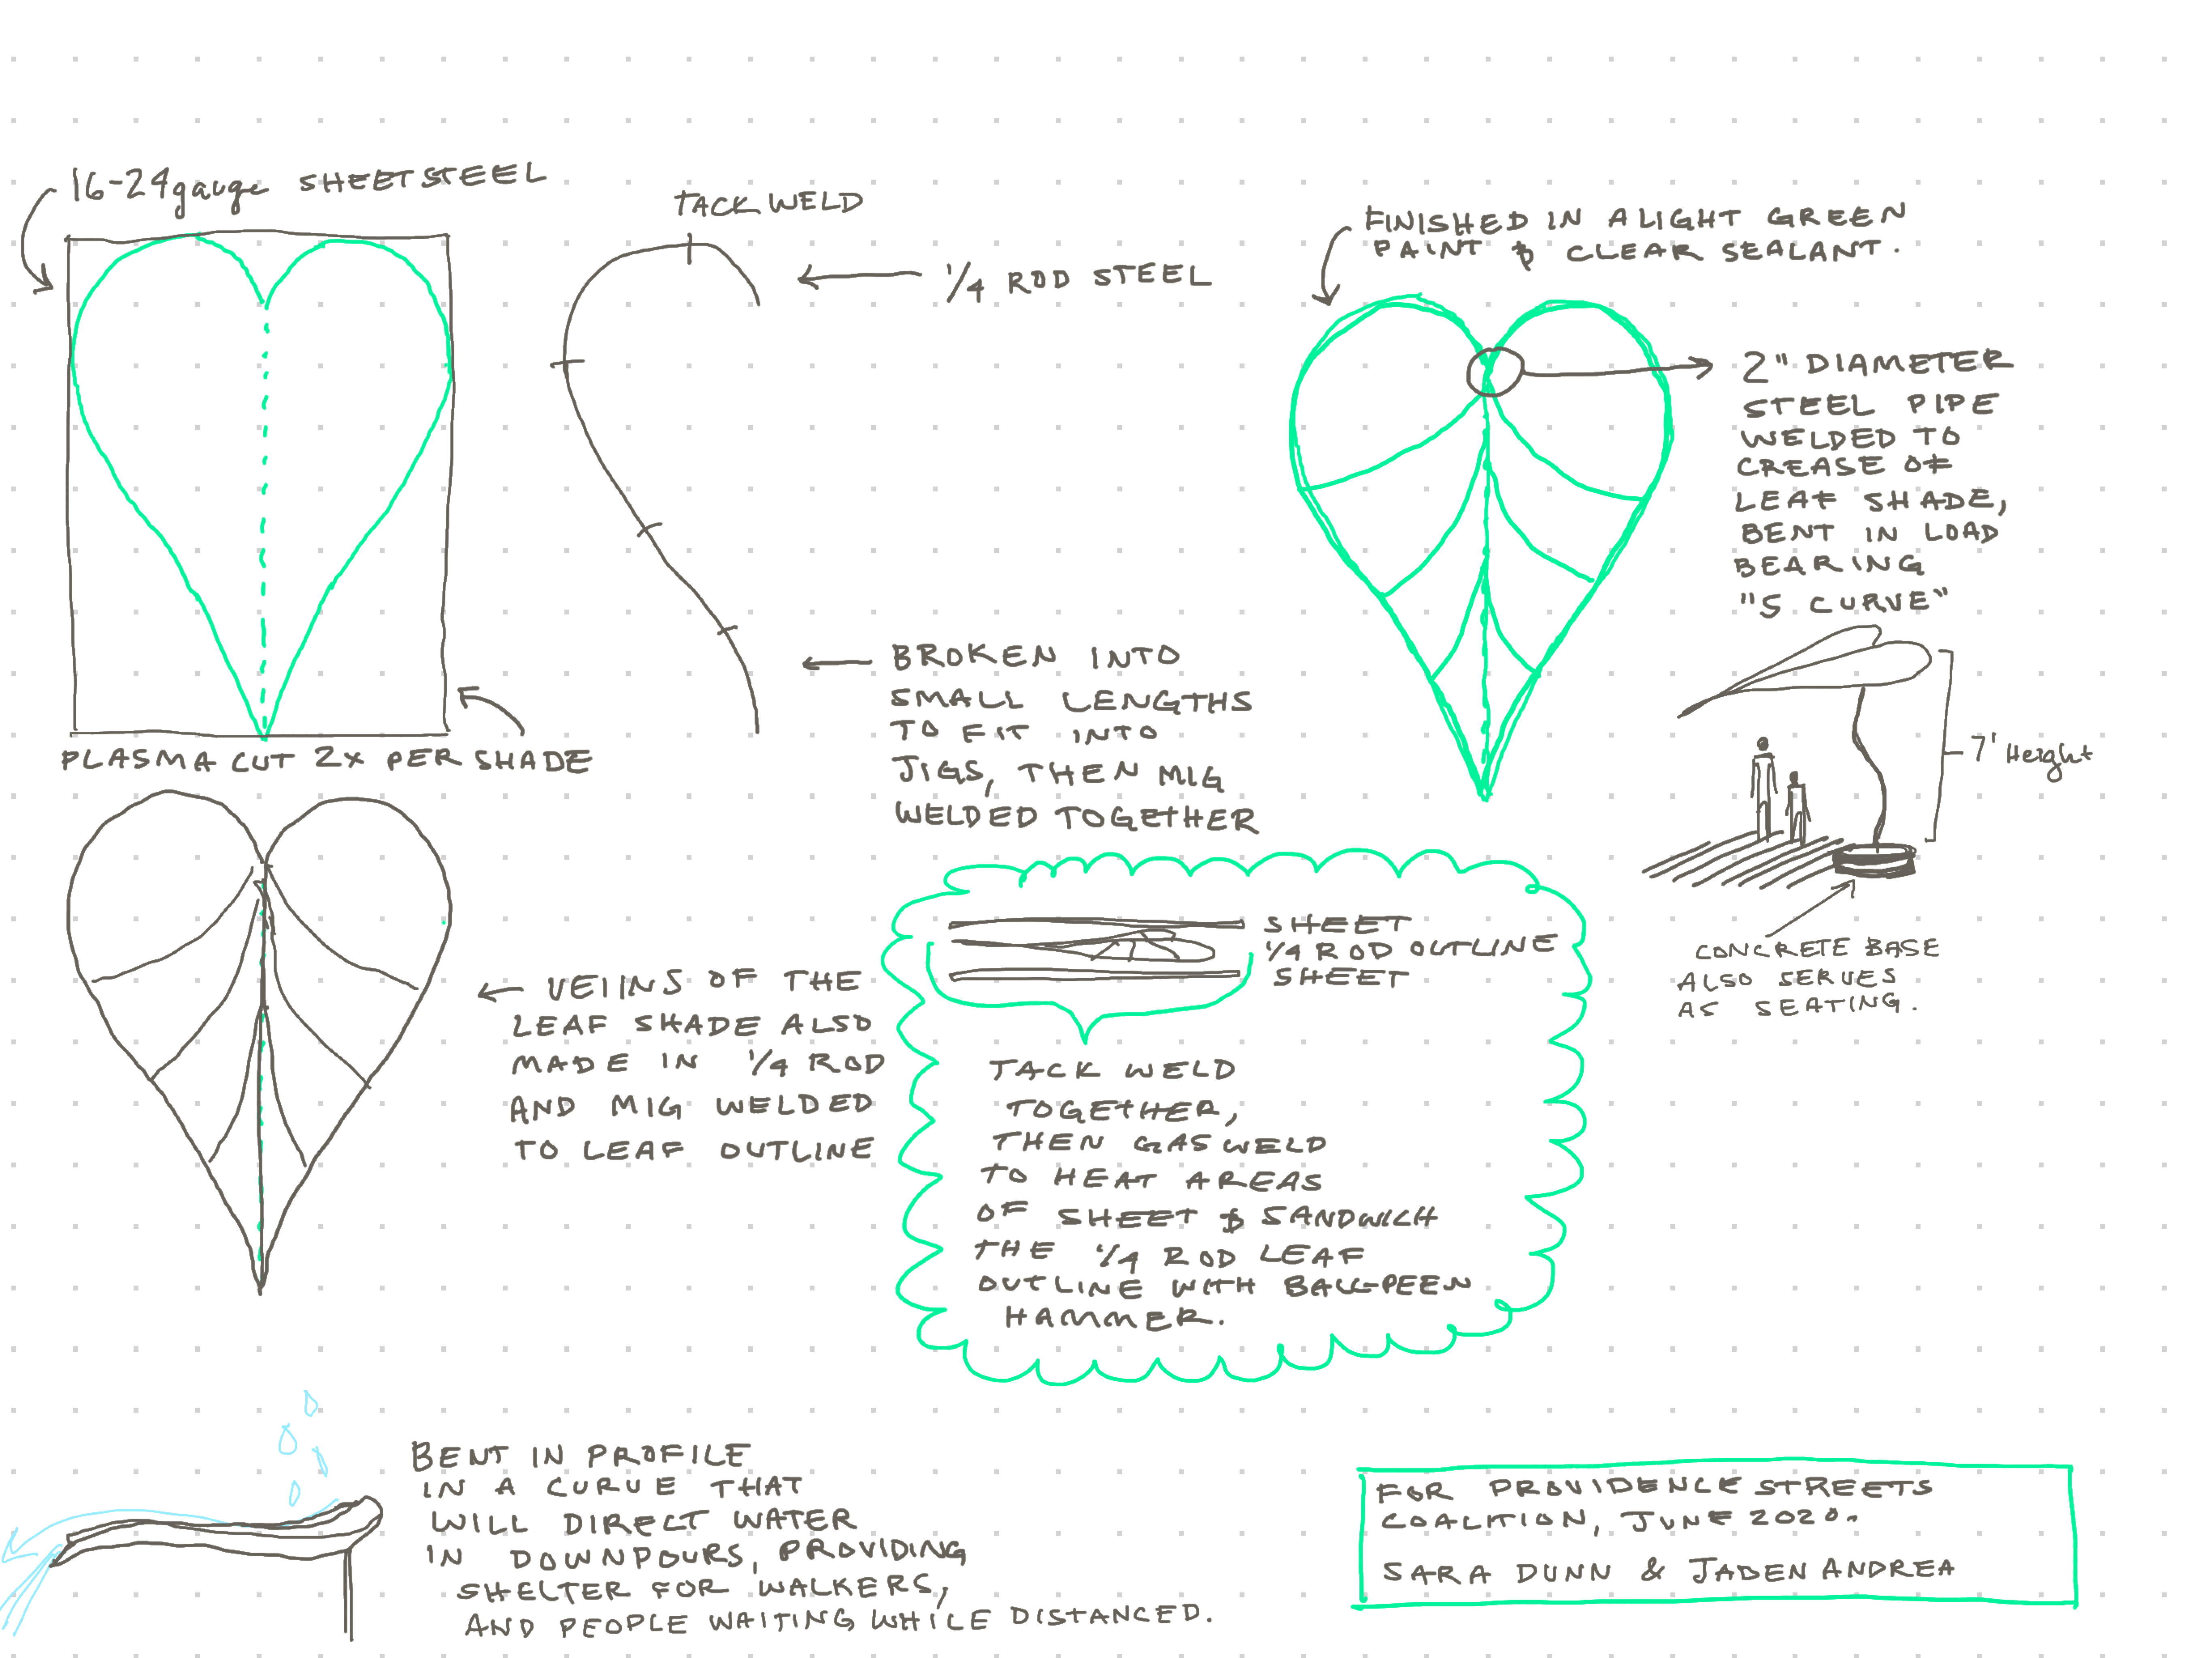 16-24gauge SHEET STEEL
PLASMA CUT 2X PER SHADE
TACK WELD
1/4 ROD STEEL
BROKEN INTO
SMALL LENGTHS
TO FIT INTO
JIGS, THEN MIG
WELDED TOGETHER
FINISHED IN A LIGHT GREEN
PAINT & CLEAR SEALANT.
2" DIAMETER
STEEL PIPE
WELDED TO
CREASE OF
LEAF SHADE,
BENT IN LOAD
BEARING
"S CURVE"
7' Height
CONCRETE BASE
ALSO SERVES
AS SEATING.
VEIINS OF THE
LEAF SHADE ALSO
MADE IN 1/4 ROD
AND MIG WELDED
TO LEAF OUTLINE
SHEET
1/4 ROD OUTLINE
SHEET
TACK WELD
TOGETHER,
THEN GAS WELD
TO HEAT AREAS
OF SHEET & SANDWICH
THE 1/4 ROD LEAF
OUTLINE WITH BALL-PEEN
HAMMER.
BENT IN PROFILE
IN A CURVE THAT
WILL DIRECT WATER
IN DOWNPOURS, PROVIDING
SHELTER FOR WALKERS,
AND PEOPLE WAITING WHILE DISTANCED.
FOR PROVIDENCE STREETS
COALITION, JUNE 2020.
SARA DUNN & JADEN ANDREA